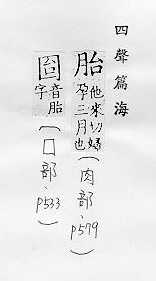 四聲篇海
胎 他來切婦孕三月也（肉部、p579）
囼 音胎字（囗部、p533）